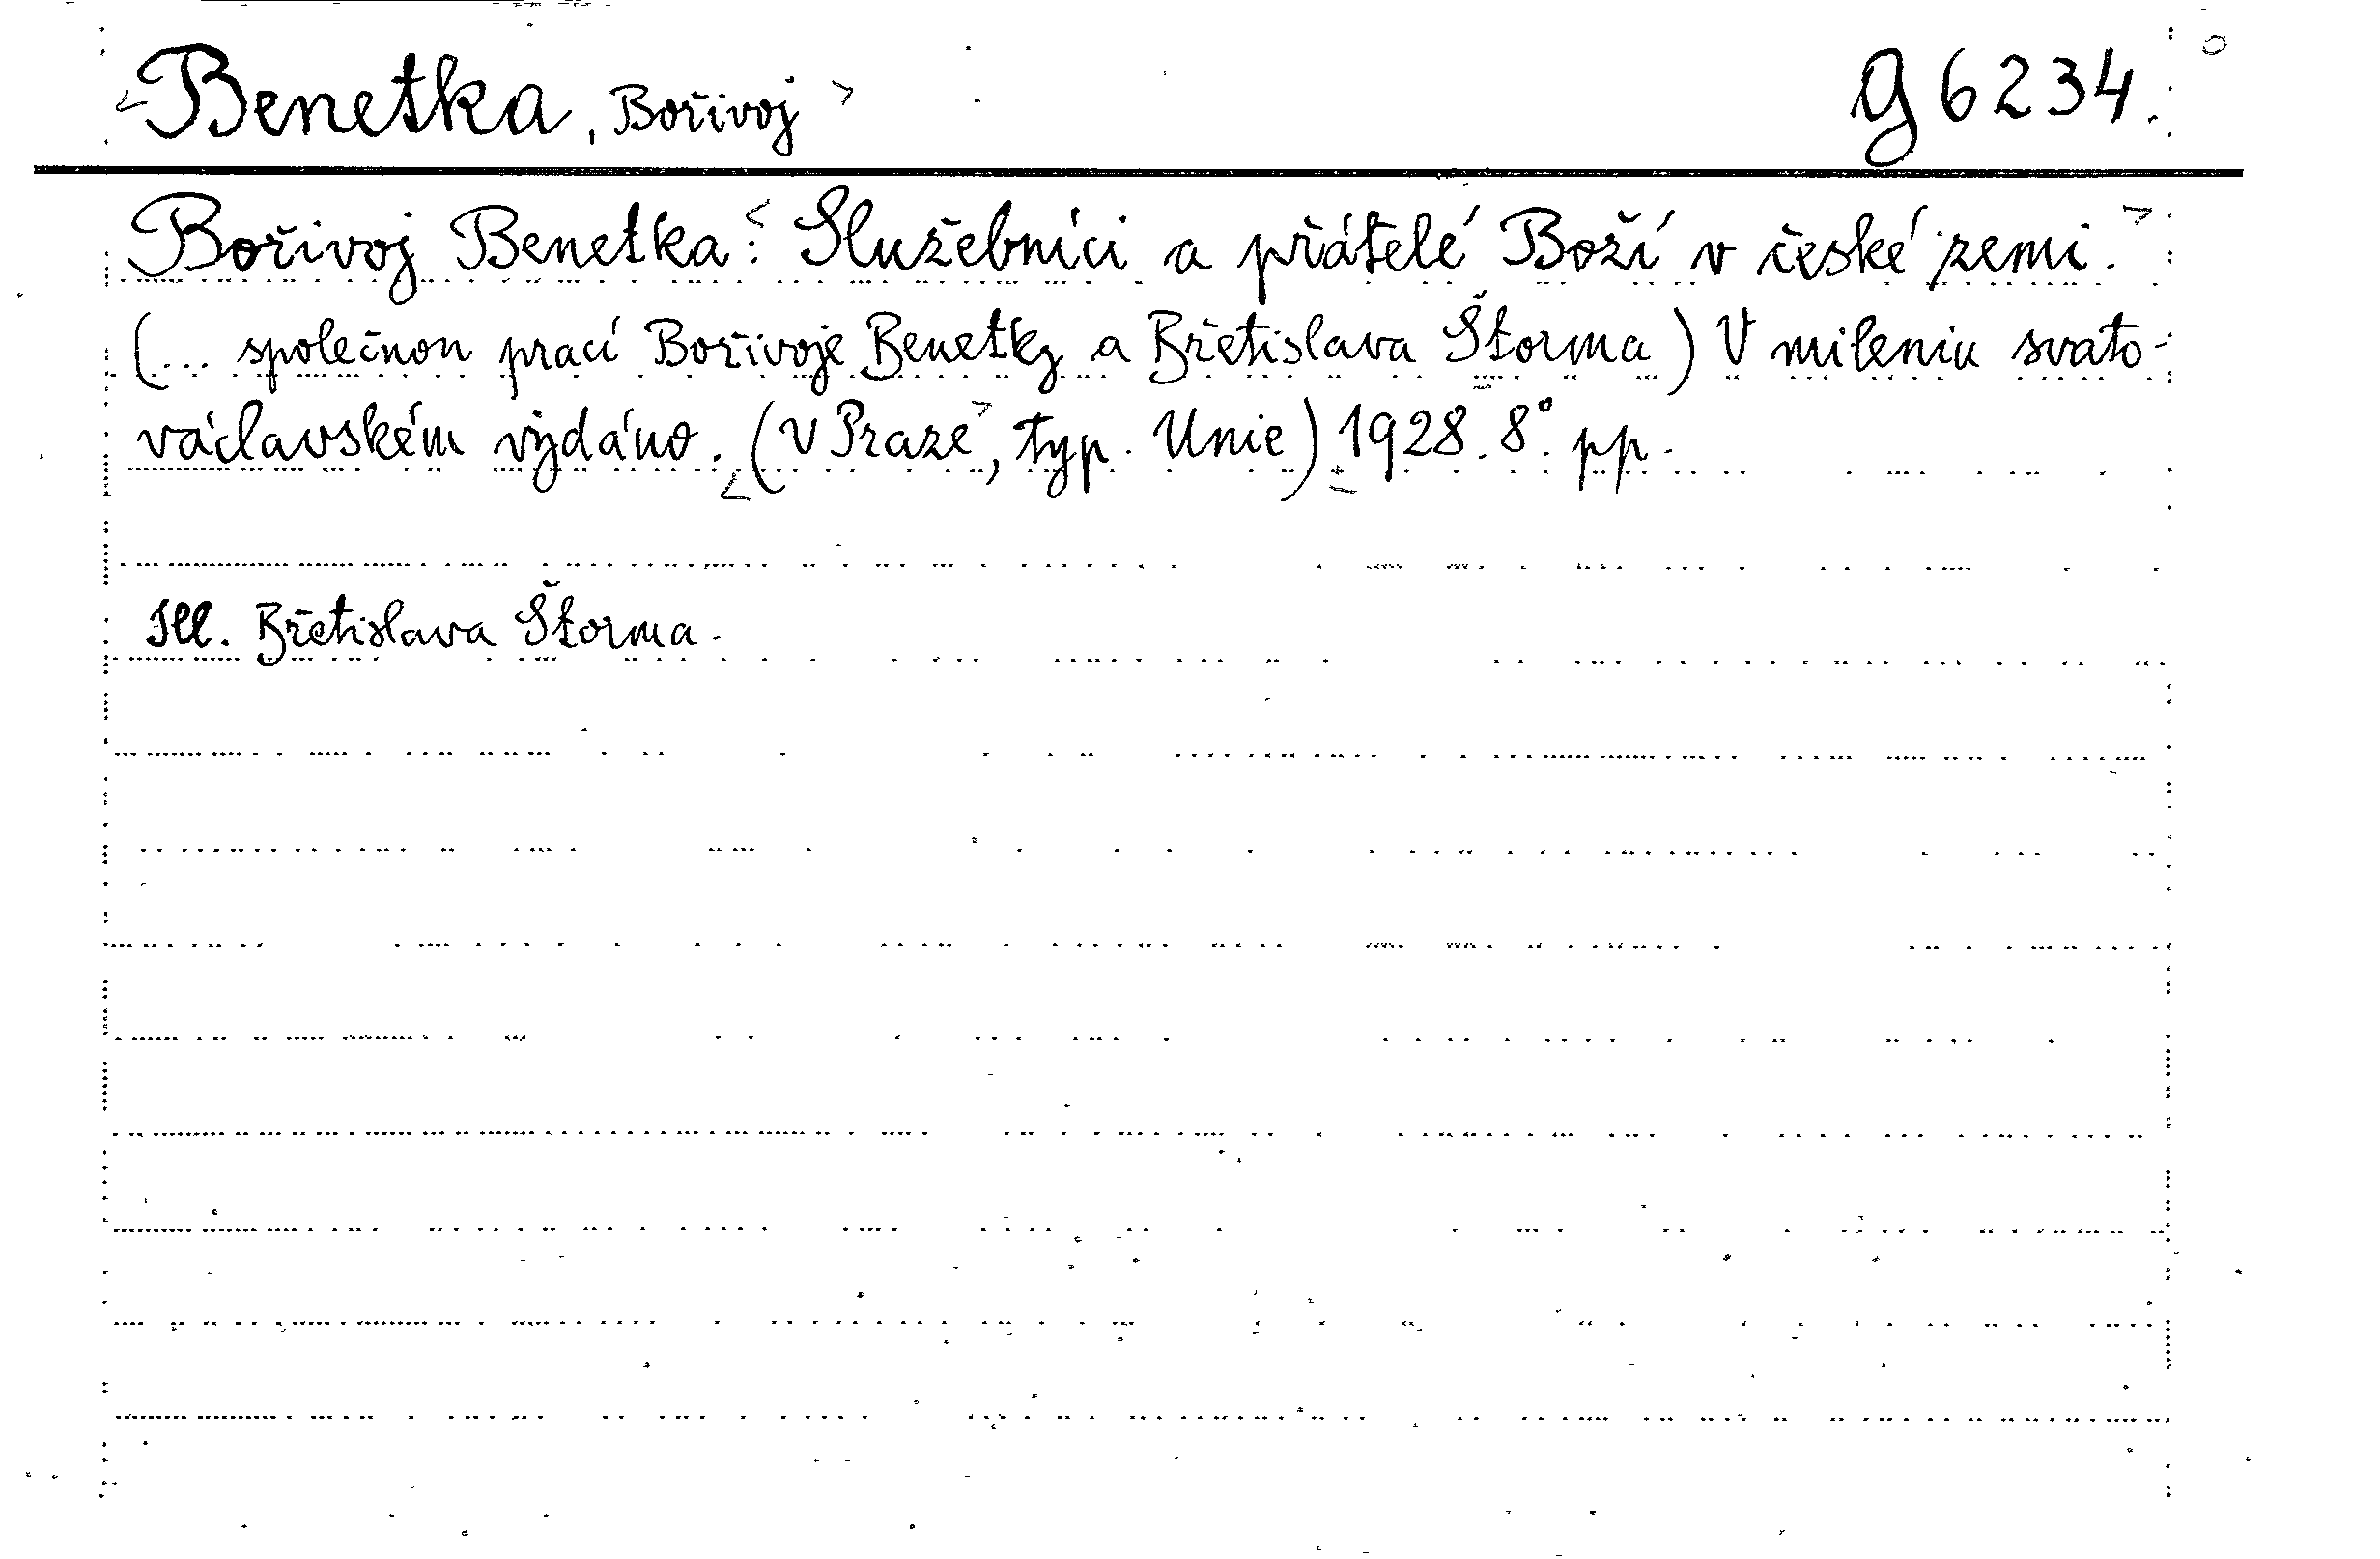 <Benetka, Bořivoj> g 6234.
Bořivoj Benetka: <Služebníci a přátelé Boží v české zemi.>
(... společnou prací Bořivoje Benetky a Břetislava Štorma) V mileniu svato-
václavském vydáno. <(V Praze>, typ. Unie) <1928. 8°. pp.
Ill. Břetislava Štorma.